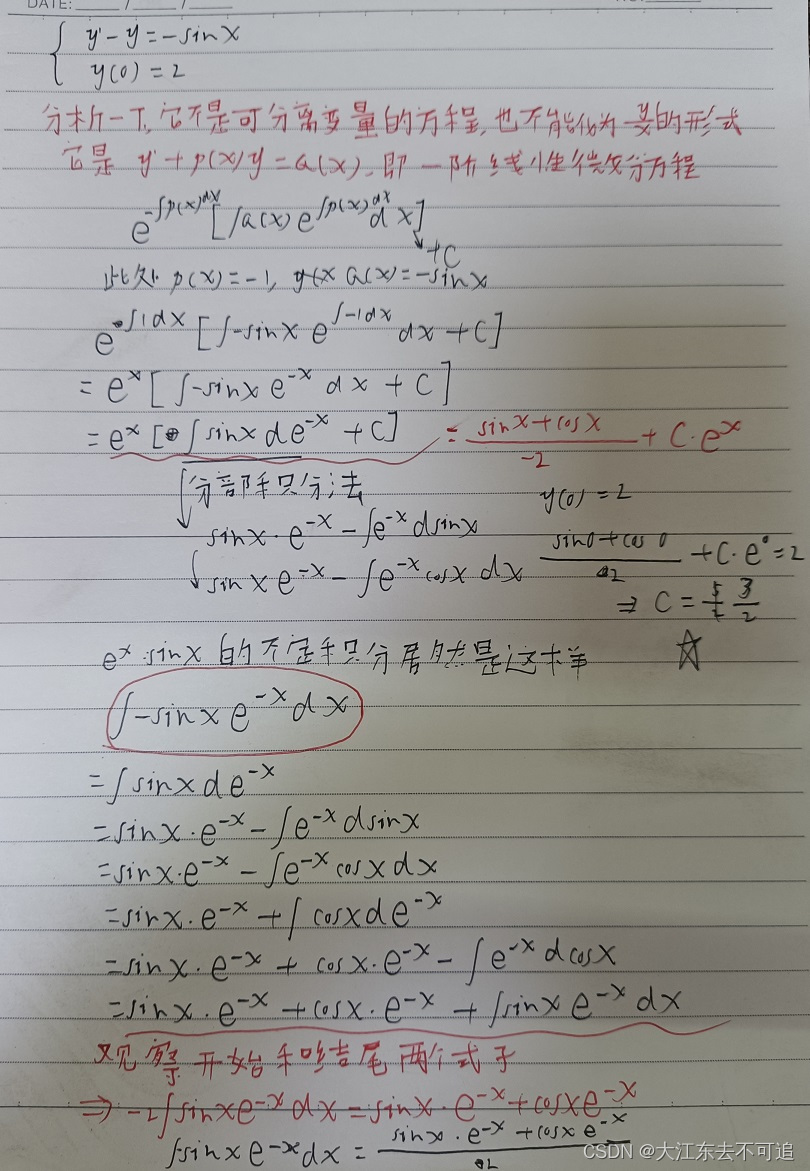 DATE:
{ y' - y = -sinx
y(0) = 2
分析一下,它不是可分离变量的方程,也不能化为 y/x 的形式
它是 y' + p(x)y = Q(x),即一阶线性微分方程
e^{-∫p(x)dx} [∫Q(x) e^{∫p(x)dx} dx]
+C
此处 p(x) = -1, Q(x) = -sinx
e^{∫1dx} [∫-sinx e^{∫-1dx} dx + C]
= e^x [∫-sinx e^{-x} dx + C]
= e^x [∫sinx de^{-x} + C] = (sinx + cosx)/(-2) + C·e^x
分部积分法
y(0) = 2
sinx·e^{-x} - ∫e^{-x} dsinx
(sin0 + cos0)/2 + C·e^0 = 2
sinx e^{-x} - ∫e^{-x} cosx dx
⇒ C = 3/2
e^x·sinx 的不定积分居然是这样 ☆
∫-sinx e^{-x} dx
= ∫sinx de^{-x}
= sinx·e^{-x} - ∫e^{-x} dsinx
= sinx·e^{-x} - ∫e^{-x} cosx dx
= sinx·e^{-x} + ∫cosx de^{-x}
= sinx·e^{-x} + cosx·e^{-x} - ∫e^{-x} dcosx
= sinx·e^{-x} + cosx·e^{-x} + ∫sinx e^{-x} dx
观察开始和结尾两个式子
⇒ -2∫sinx e^{-x} dx = sinx·e^{-x} + cosx e^{-x}
∫-sinx e^{-x} dx = (sinx·e^{-x} + cosx e^{-x})/2
CSDN @大江东去不可追